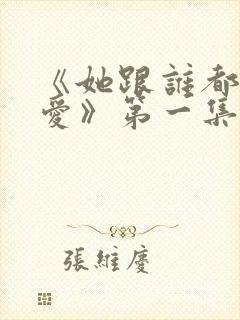 《她跟誰都
愛》第一集
張維慶